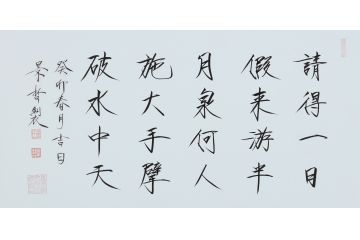 請得一日
假来游半
月泉何人
施大手擘
破水中天
癸卯春月吉日